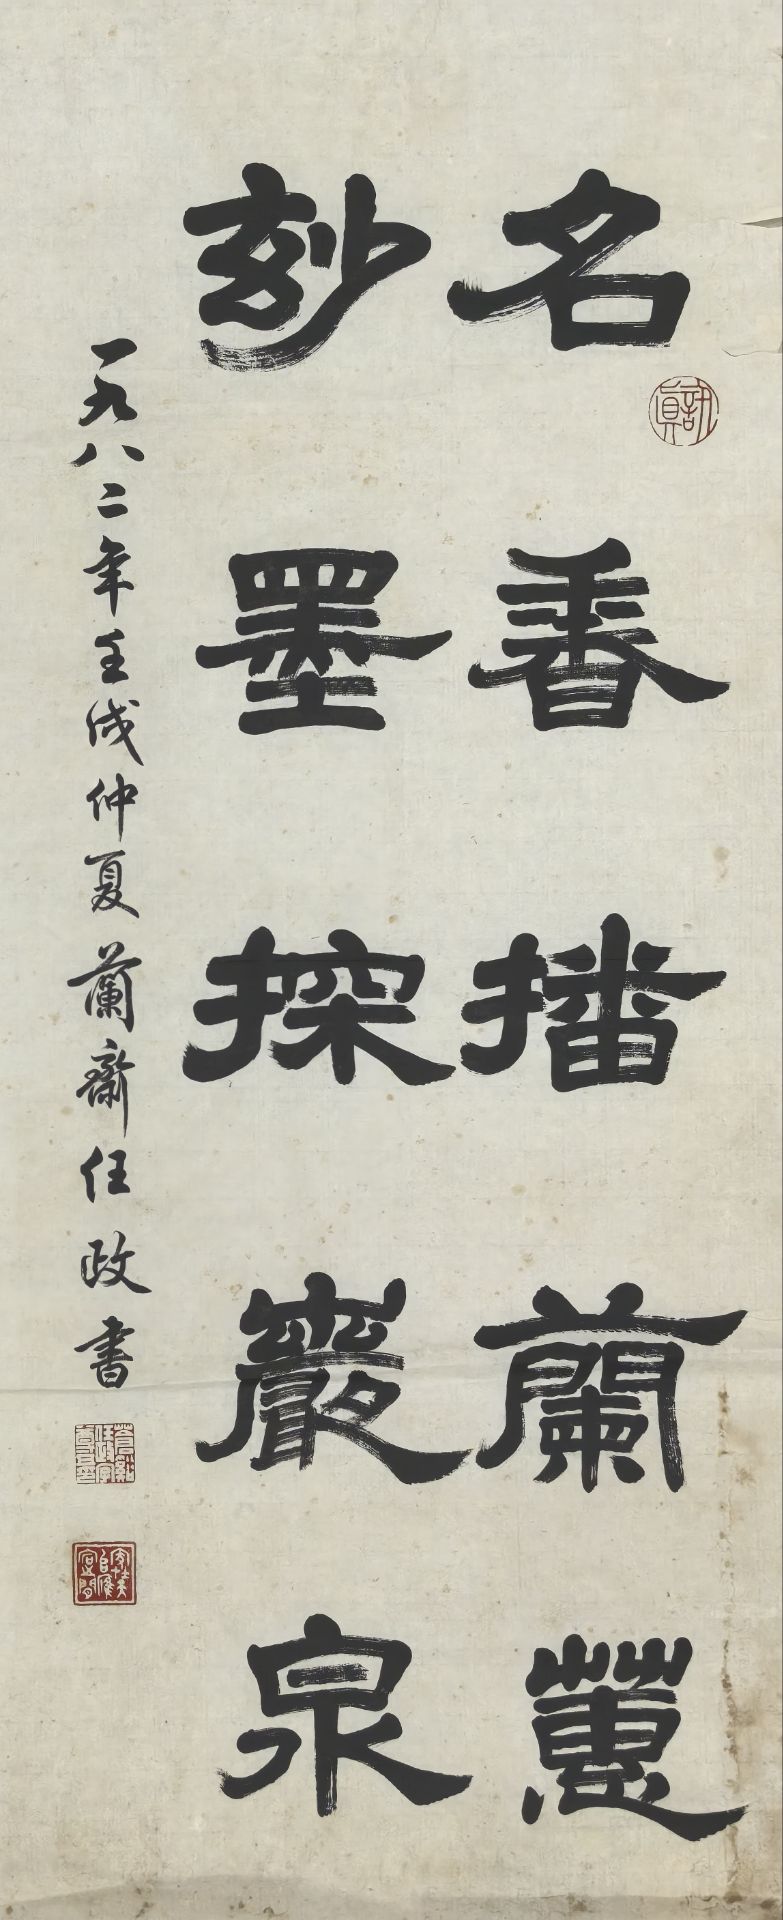 名香播蘭蕙
玅墨探巖泉
一九八二年壬戌仲夏蘭齋任政書